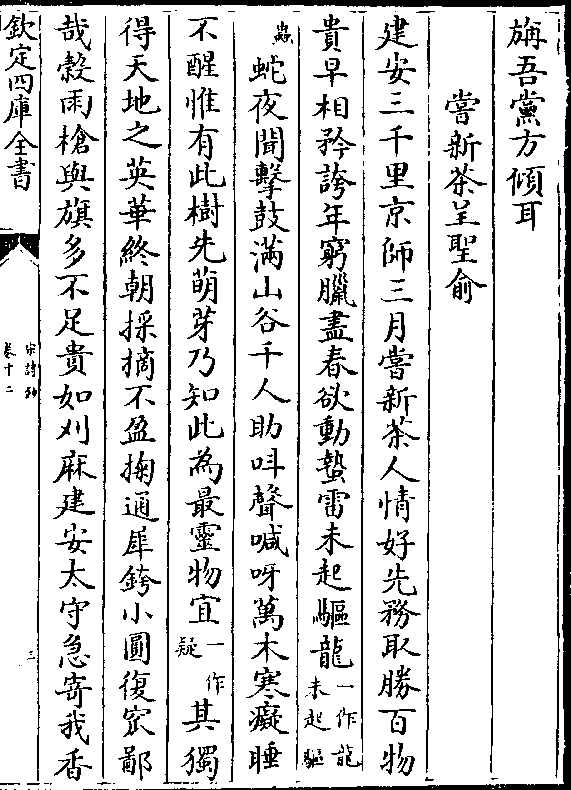 旃吾黨方傾耳
嘗新茶呈聖俞
建安三千里京師三月嘗新茶人情好先務取勝百物
貴早相矜誇年窮臘盡春欲動蟄雷未起驅龍一作龍未起驅
蟲蛇夜聞擊鼓滿山谷千人助叫聲喊呀萬木寒癡睡
不醒惟有此樹先萌芽乃知此為最靈物宜一作疑其獨
得天地之英華終朝採摘不盈掬通犀銙小圓復窊鄙
哉穀雨槍與旗多不足貴如刈麻建安太守急寄我香
欽定四庫全書
宋詩鈔
卷十二
三